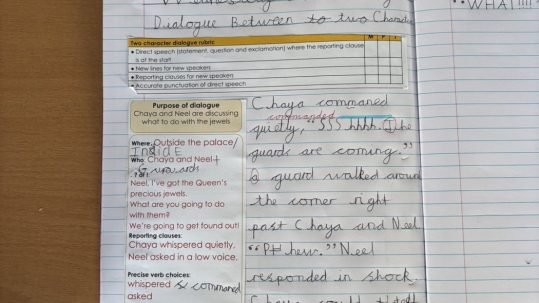 Dialogue Between to two
"WHAT!!!!
Two character dialogue rubric
• Direct speech (statement, question and exclamation) where the reporting clause
is at the start
• New lines for new speakers
• Reporting clauses for new speakers
• Accurate punctuation of direct speech
Purpose of dialogue
Chaya and Neel are discussing
what to do with the jewels
Where: Outside the palace/
Who: Chaya and Neel +
Neel, I've got the Queen's
precious jewels.
What are you going to do
with them?
We're going to get found out!
Reporting clauses:
Chaya whispered quietly,
Neel asked in a low voice,
Precise verb choices:
whispered commaned
asked
Chaya commaned
commanded
quietly, "SSShhhh. The
guards are coming."
a guard walked around
the corner right
past Chaya and Neel.
"PHhew." Neel
responded in shock.
Chaya